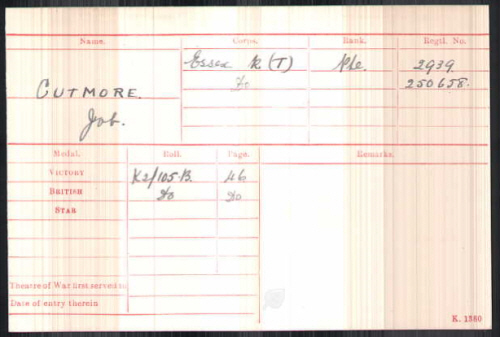 Name. Corps. Rank. Regtl. No.
CUTMORE. Essex R (T) Pte. 2939
Job. Do 250658.
Medal. Roll. Page. Remarks.
VICTORY K2/105.B. 46
BRITISH Do Do
STAR
Theatre of War first served in
Date of entry therein
K. 1380